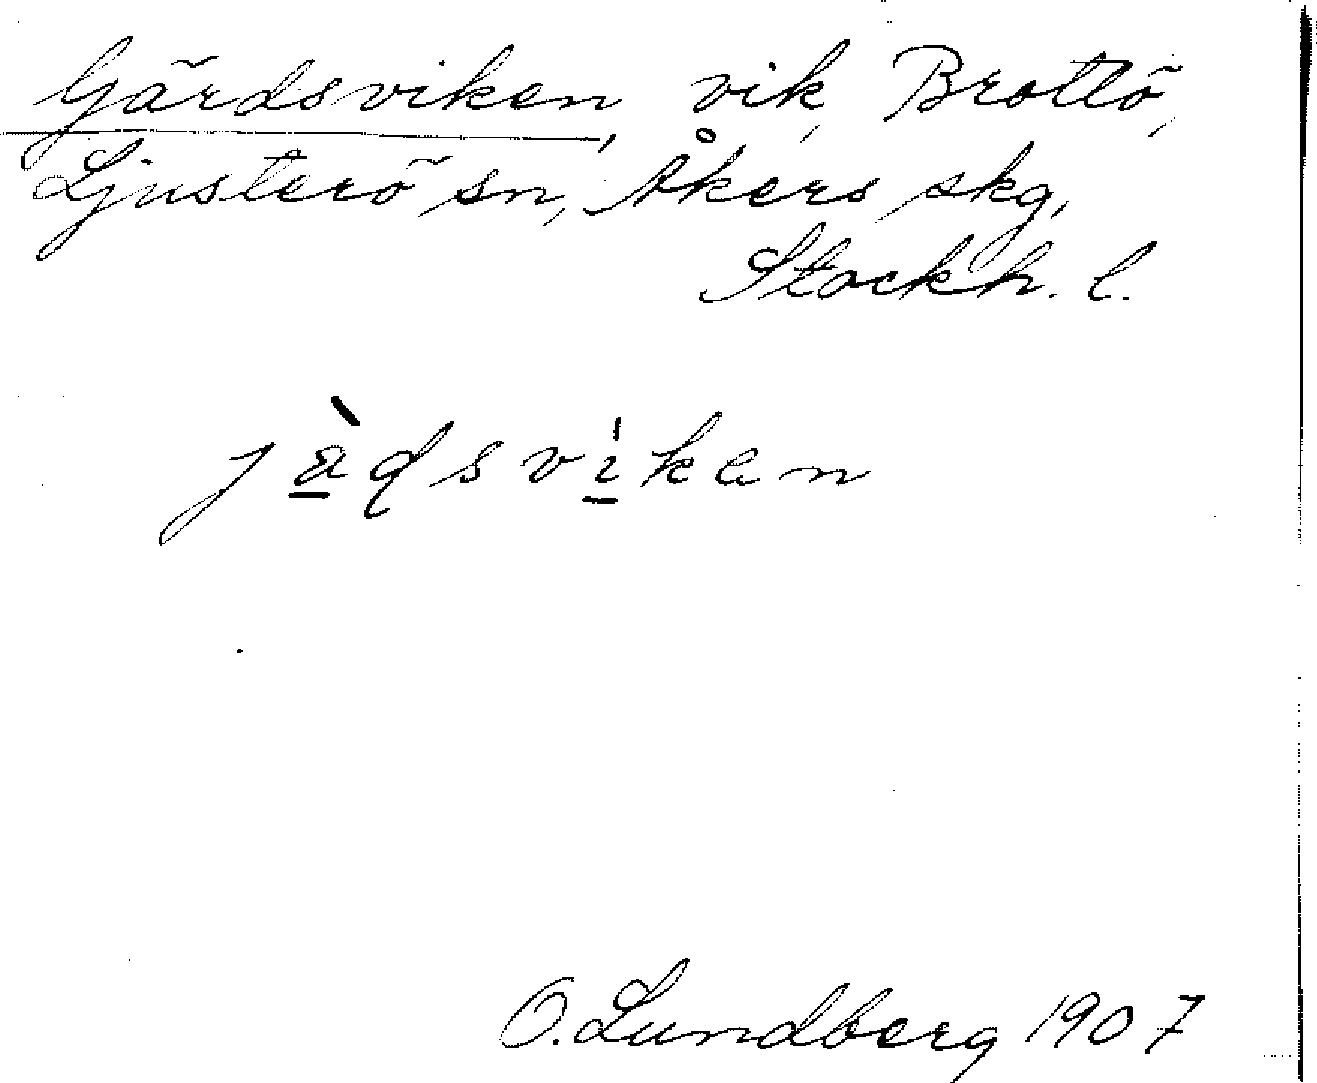 Gärdsviken, vik, Brottö,
Ljusterö sn, Åkers skg,
Stockh. l.
jä̀ḍsvi̍ken
O. Lundberg 1907